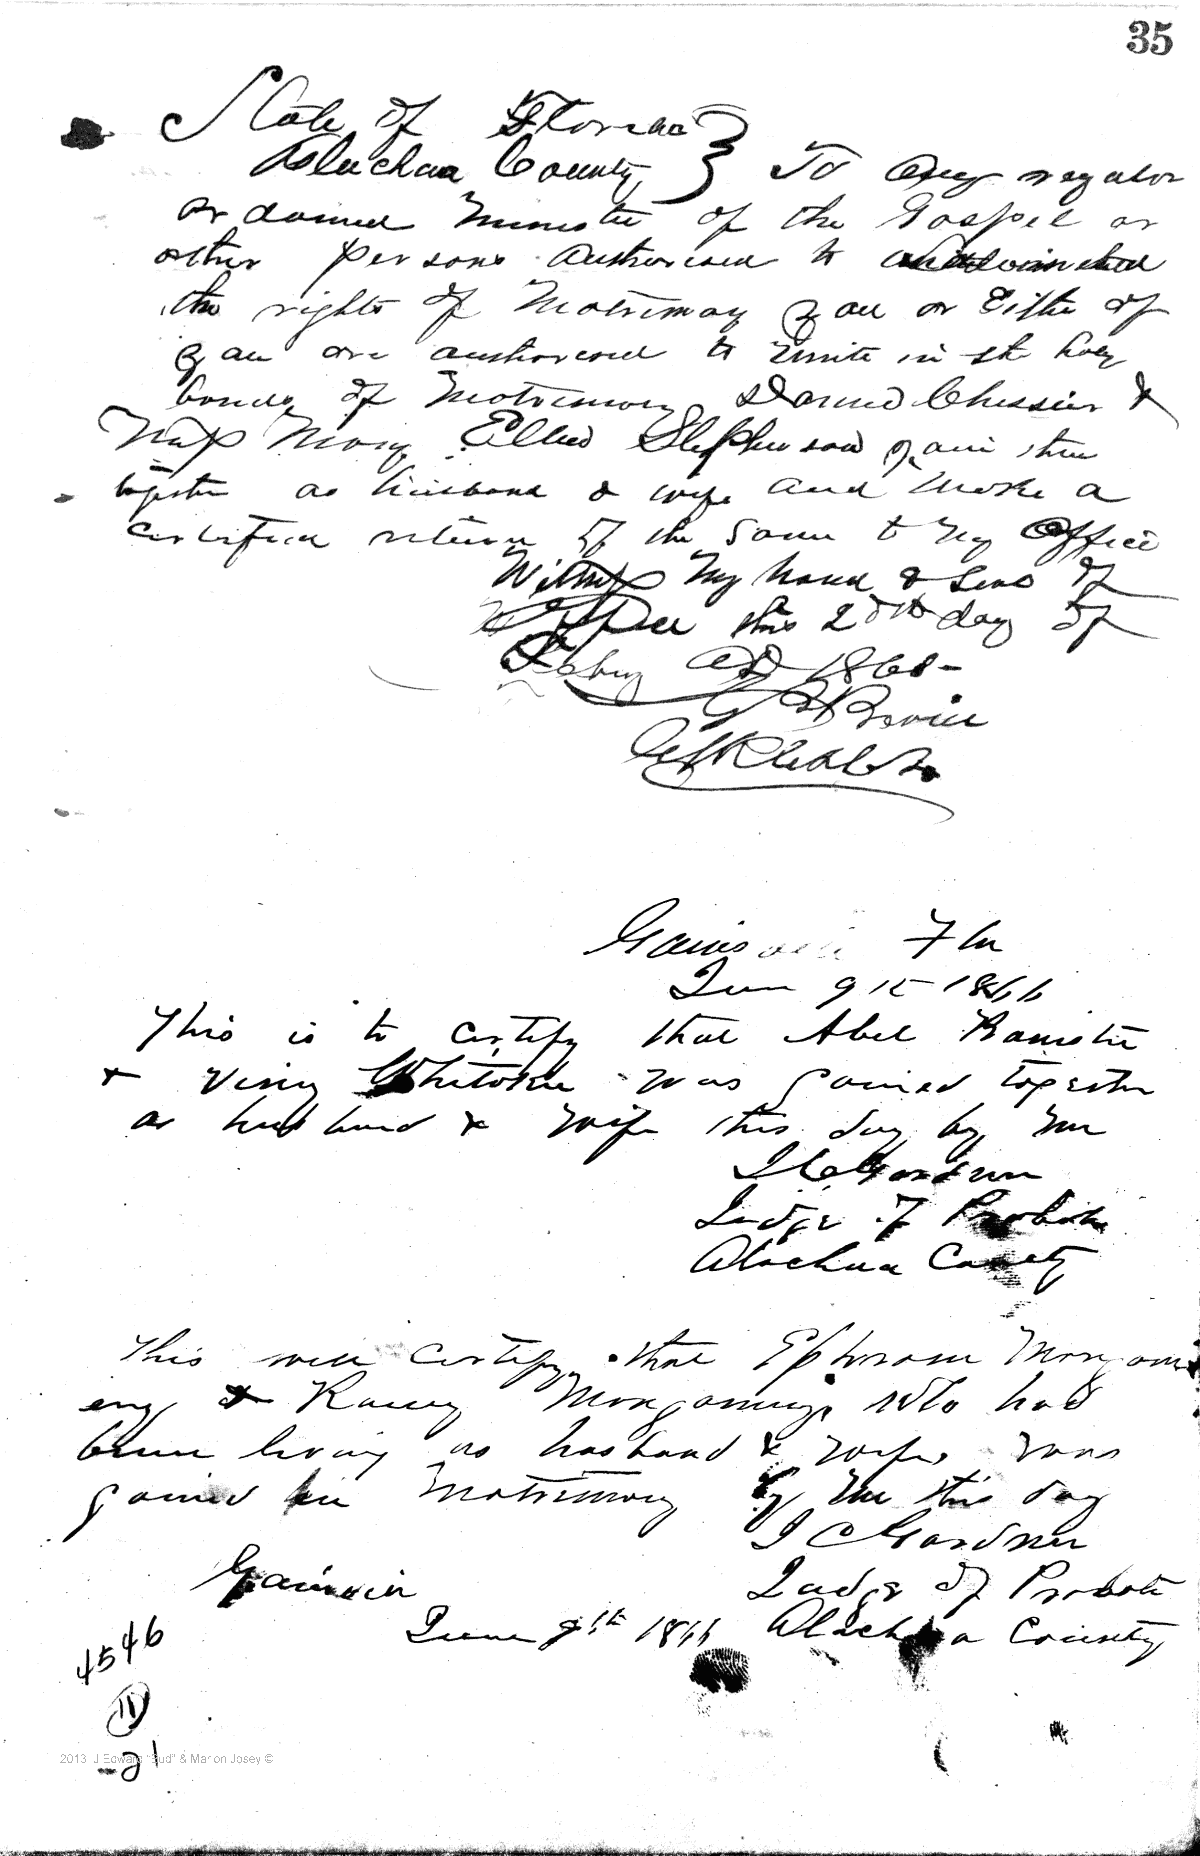 35
State of Florida
Alachua County } To any regular
ordained Minister of the Gospel or
other persons authorised to
the rights of Matrimony you or Either of
you are authorised to Unite in the holy
bonds of Matrimony Chessier &
Miss Mary Ellen Stephenson join them
together as husband & wife and make a
certified return of the same to my Office
Witness My hand & Seal of
Office this 25th day of
Feby AD 1868
Gainsville Fla
June 9th 1866
This is to certify that Abel Banister
& Viny was joined together
as husband & wife this day by me
J C Gardner
Judge of Probate
Alachua County
This will certify that Ephram Mongom
ery & Mongomery who had
been living as husband & wife, was
joined in Matrimony by Me this day
J C Gardner
Judge of Probate
June 9th 1866 Alachua County
4546
11
-21
2013 J Edward "Bud" & Marion Josey ©